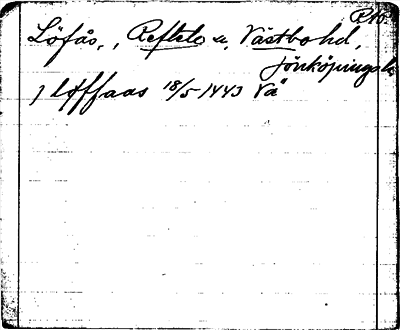 Rao.
Löfås, Reftele s., Västbo hd,
Jönköpings l.
J løffaas 18/5 1443 Vä